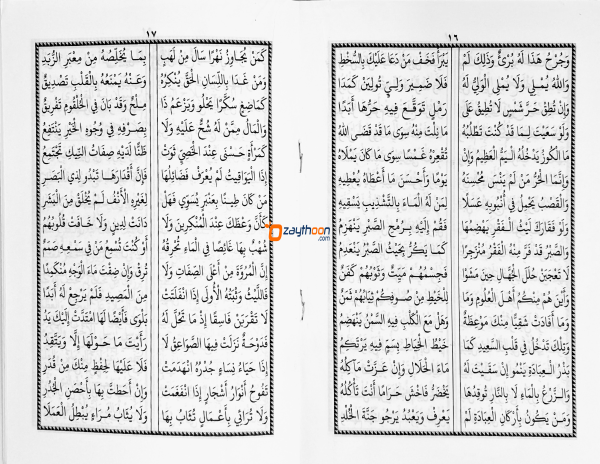 ١٦
وَجُرْحُ هَذَا لَهُ بُرْئٌ وَذَلِكَ لَمْ يَبْرَأْ فَخَفْ مَنْ دَعَا عَلَيْكَ بِالسُّخْطِ
وَاللهُ يُمْلِي وَلَا يُمْلِي الْوَلِيُّ لَهُ فَلَا ضَمِيرَ وَلِيٍّ تُولِيَنْ كَمَدَا
وَإِنْ تُطِقْ حَرَّ شَمْسٍ لَا تُطِيقُ عَلَى رَمْلٍ تَوَقَّعَ فِيهِ حَرُّهَا أَبَدًا
وَلَوْ سَعَيْتَ لِمَا قَدْ كُنْتَ تَطْلُبُهُ مَا نِلْتَ مِنْهُ سِوَى مَا قَدْ قَضَى اللهُ
مَا الْكُوزُ يَدْخُلُهُ الْيَمُّ الْعَظِيمُ وَإِنْ تُقْعِرْهُ غَمْسًا سِوَى مَا كَانَ يَمْلَاهُ
وَإِنَّمَا الْحُرُّ مَنْ لَمْ يَنْسَ مُحْسِنَهُ يَوْمًا وَأَحْسَنَ مَا أَعْطَاهُ يُعْطِيهِ
وَالْقَصْبُ يَحْمِلُ فِي أُنْبُوبِهِ عَسَلًا لِمَنْ لَهُ الْمَاءَ وَالتَّشْذِيبَ يَسْقِيهِ
وَلَوْ فَقَارَكَ لَيْثُ الْفَقْرِ يَهْضِمُهَا فَقُمْ إِلَيْهِ بِرُمْحِ الصَّبْرِ يَنْهَزِمُ
وَالصَّبْرُ قَدْ فَرَّ مِنْهُ الْفَقْرُ مُنْزَجِرًا كَمَا يَكُرُّ بِحَيْثُ الصَّبْرُ يَنْعَدِمُ
لَا تَعْجَبَنْ حُلَلُ الْجُهَّالِ حِينَ مَشَوْا فَجِسْمُهُمْ مَيِّتٌ وَثَوْبُهُمْ كَفَنُ
وَأَيْنَ هُمْ مِنْكُمُ أَهْلَ الْعُلُومِ وَمَا لِلْخَيْطِ مِنْ صُوفِكُمْ ثِيَابُهُمْ ثَمَنُ
وَمَا أَفَادَتْ شَقِيًّا مِنْكَ مَوْعِظَةٌ وَهَلْ مَعَ الْكَلْبِ فِيهِ السَّمْنُ يَنْهَضِمُ
وَتِلْكَ تَدْخُلُ فِي قَلْبِ السَّعِيدِ كَمَا خَيْطُ الْخِيَاطِ بِسَمٍّ فِيهِ يَرْتَكِمُ
بَذْرُ الْعِبَادَةِ يَنْمُو إِنْ سَقَيْتَ لَهُ مَاءَ الْحَلَالِ وَإِنْ عَزَّتْ مَآكِلُهُ
وَالزَّرْعُ بِالْمَاءِ لَا بِالنَّارِ تُوقِدُهَا يَخْضَرُّ فَاخْشَ حَرَامًا أَنْتَ تَأْكُلُهُ
وَمَنْ يَكُونُ بِأَرْكَانِ الْعِبَادَةِ لَمْ يَعْرِفْ وَيَعْبُدُ يَرْجُو جَنَّةَ الْخُلْدِ
١٧
كَمَنْ يُجَاوِزُ نَهْرًا سَالَ مِنْ لَهَبٍ بِمَا يُخَلِّصُهُ مِنْ مِعْبَرِ الزُّبَدِ
وَمَنْ غَدَا بِاللِّسَانِ الْحَقَّ يُنْكِرُهُ وَعَنْهُ يَمْنَعُهُ بِالْقَلْبِ تَصْدِيقُ
كَمَاضِغٍ سُكَّرًا يَحْلُو وَيَزْعُمُ ذَا مِلْحٌ وَقَدْ بَانَ فِي الْحُلْقُومِ تَفْرِيقُ
وَالْمَالُ مِمَّنْ لَهُ شُحٌّ عَلَيْهِ وَلَا بِصَرْفِهِ فِي وُجُوهِ الْخَيْرِ يَنْتَفِعُ
كَمَرْأَةٍ حَسْنَى عِنْدَ الْخَصِيِّ ثَوَتْ ظَنًّا لَدَيْهِ صِفَاتُ النَّيْكِ تَجْتَمِعُ
إِذَا الْيَوَاقِيتُ لَمْ يُعْرَفْ فَضَائِلُهَا فَإِنَّ أَقْدَارَهَا تَبْدُو لِذِي الْبَصَرِ
مَنْ كَانَ طِيبًا بِعَنْبَرٍ يُسَوَّى فَهَلْ لِغَيْرِهِ الْأَنْفُ لَمْ يُخْلَقْ مِنَ الْبَشَرِ
كَأَنَّ وَعْظَكَ عِنْدَ الْمُنْكِرِينَ وَلَا دَانَتْ لِدِينٍ وَلَا خَافَتْ قُلُوبُهُمْ
شُهُبٌ بِهَا غَائِصًا فِي الْمَاءِ تُحْرِقُهُ أَوْ كُنْتَ تُسْمِعُ مَنْ فِي سَمْعِهِ صَمَمُ
إِنَّ الْمُرُوَّةَ مِنْ أَعْلَى الصِّفَاتِ وَلَا تُرِقْ وَإِنْ ضِفْتَ مَاءَ الْوَجْهِ مُنْكَمِدًا
فَاللَّيْثُ وَثْبَتُهُ الْأُولَى إِذَا انْفَلَتَتْ مِنَ الْمَصِيدِ فَلَمْ يَرْجِعْ لَهُ أَبَدًا
لَا تَقْرَبَنَّ فَاسِقًا إِذْ مَا تَحُلُّ لَهُ بَلْوَى فَأَيْضًا لَهَا امْتَدَّتْ إِلَيْكَ يَدُ
فَدَوْحَةٌ نَزَلَتْ فِيهَا الصَّوَاعِقُ لَا رَأَيْتَ مَا حَوْلَهَا إِلَّا وَيَتَّقِدُ
إِذَا حَيَاءُ نِسَاءٍ جُدْرُهُ انْهَدَمَتْ فَلَا عَلَيْهَا لِحِفْظٍ مِنْكَ مِنْ قَدَرِ
تَفُوحُ أَنْوَارُ أَشْجَارٍ إِذَا انْفَغَمَتْ وَإِنْ أَحَطْتَ بِهَا بِأَحْصَنِ الْجُدُرِ
وَلَا تُرَائِي بِأَعْمَالٍ تُثَابُ بِهَا وَلَا يُثَابُ مُرَاءٍ يُبْطِلُ الْعَمَلَا
zaythoon
.com